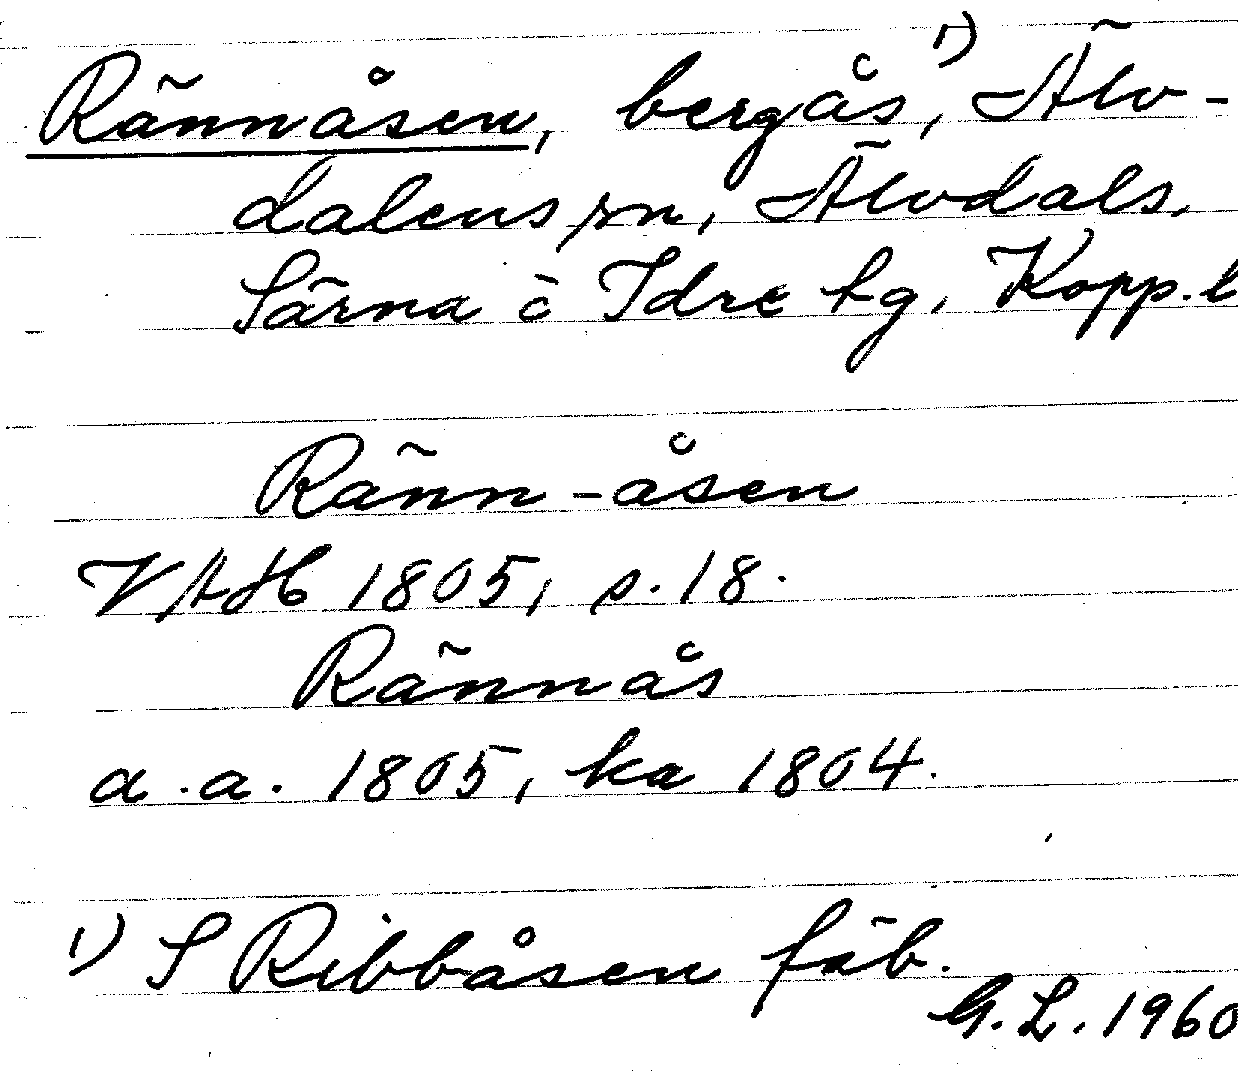 Rännåsen, bergås,¹) Älv-
dalens sn, Älvdals,
Särna å Idre tg, Kopp. l
Ränn-åsen
VAH 1805, s. 18.
Rännås
a. a. 1805, ka 1804.
¹) S Ribbåsen fäb.
G. L. 1960